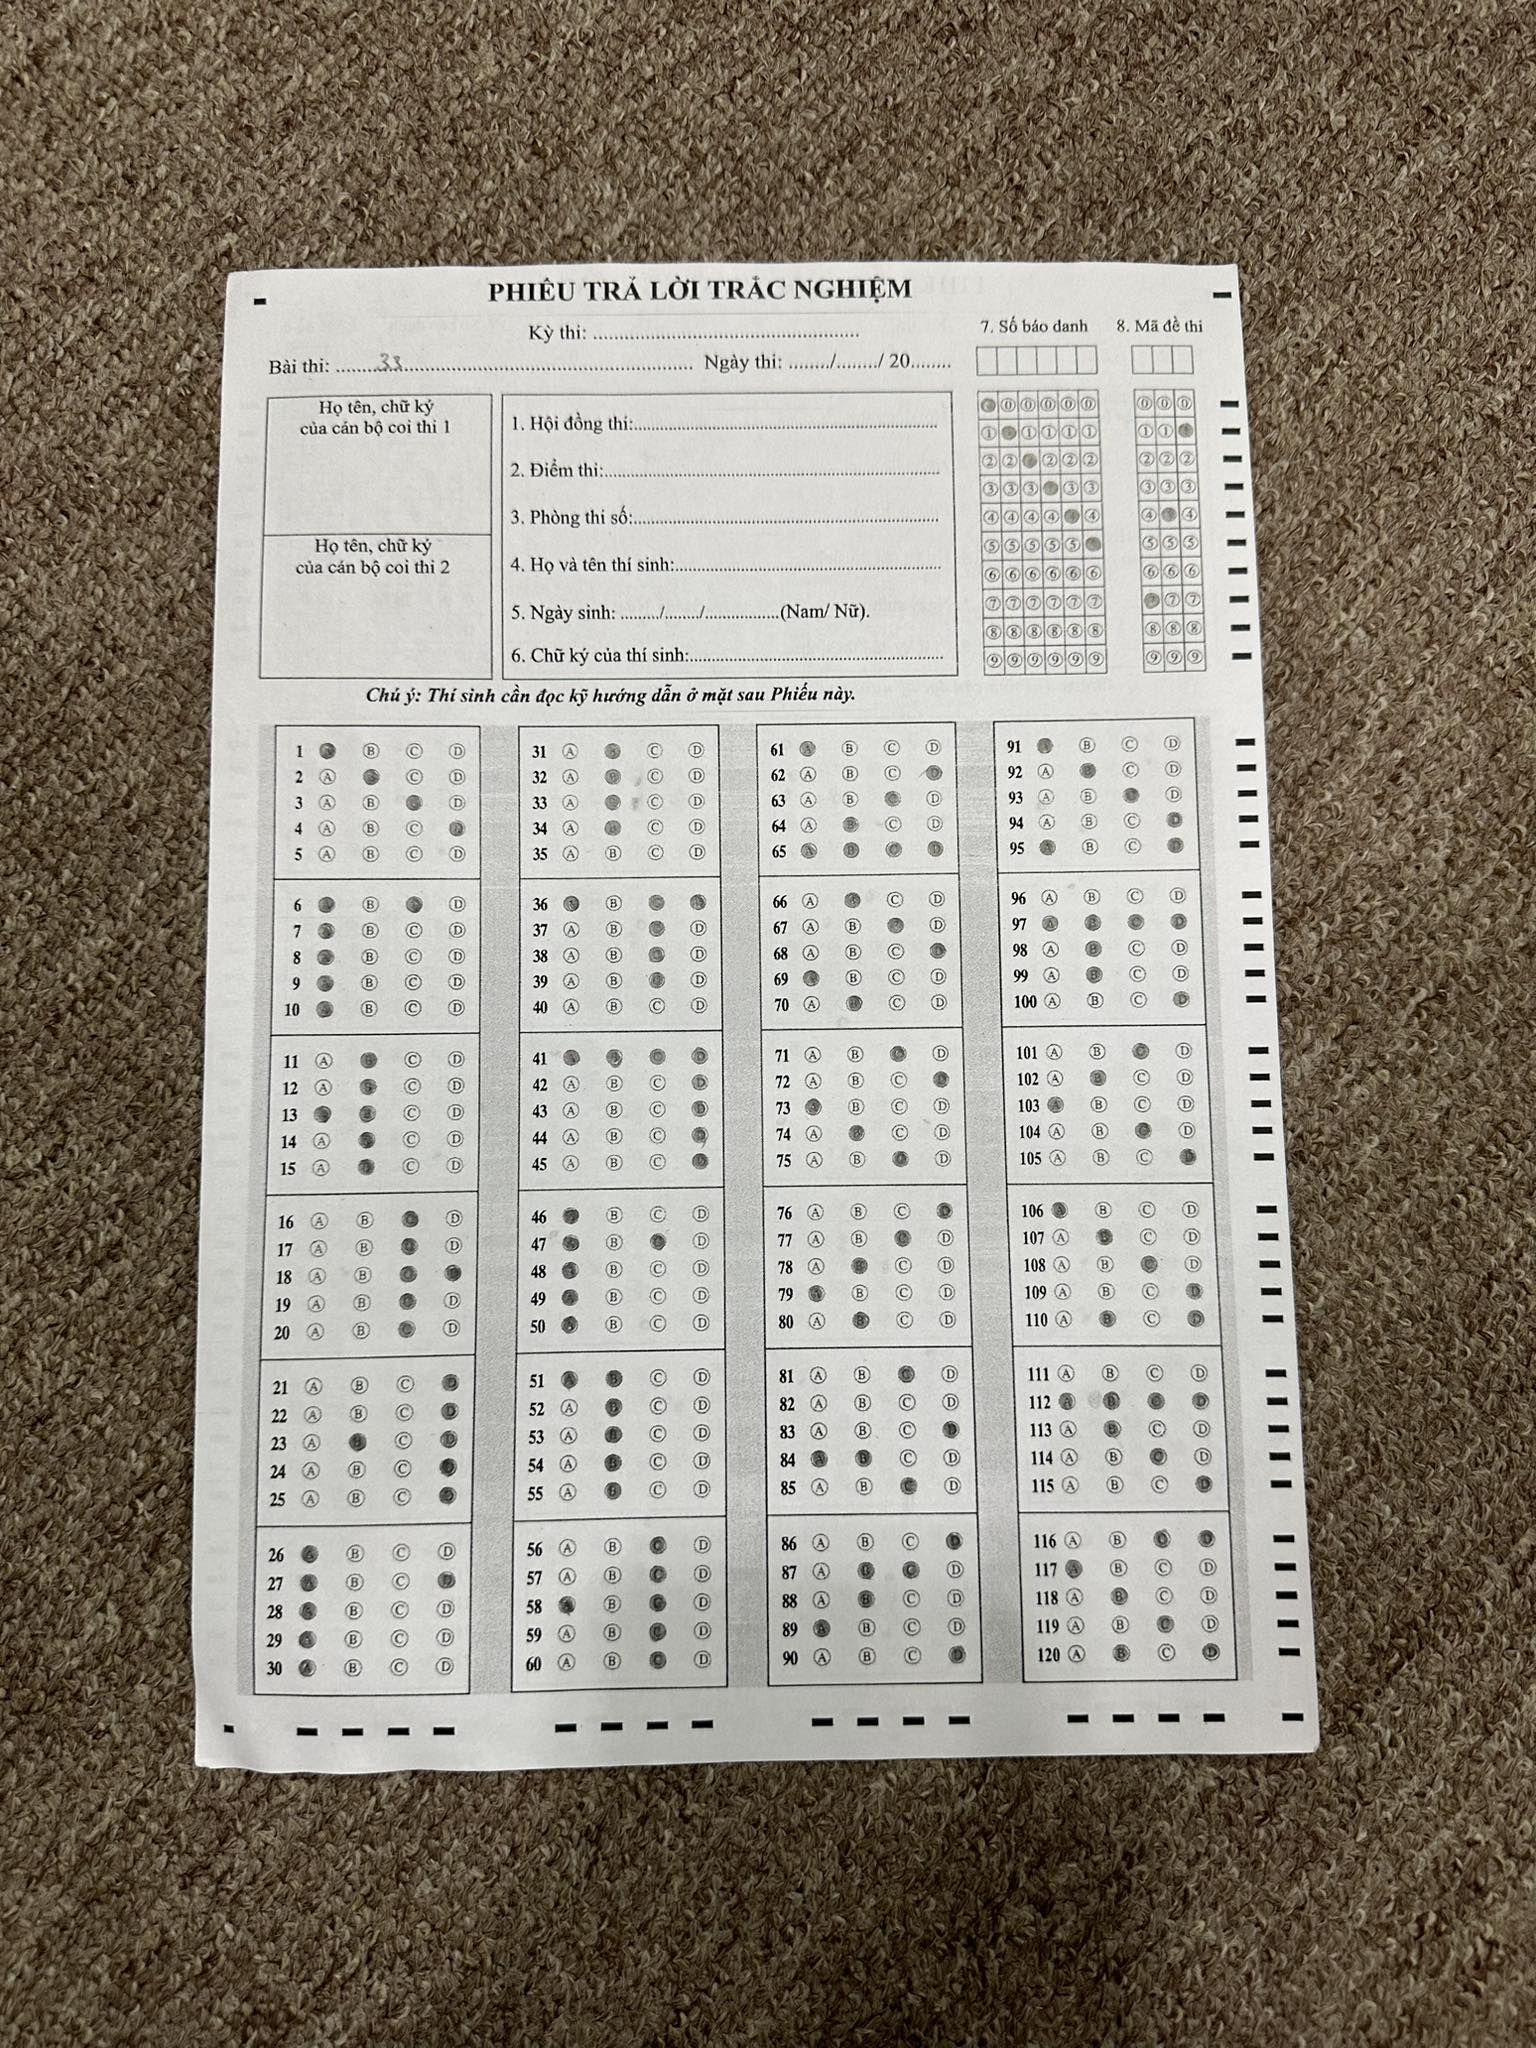 PHIẾU TRẢ LỜI TRẮC NGHIỆM
Kỳ thi:
Bài thi: 33 Ngày thi: / / 20
7. Số báo danh 8. Mã đề thi
Họ tên, chữ ký
của cán bộ coi thi 1
Họ tên, chữ ký
của cán bộ coi thi 2
1. Hội đồng thi:
2. Điểm thi:
3. Phòng thi số:
4. Họ và tên thí sinh:
5. Ngày sinh: / / (Nam/ Nữ).
6. Chữ ký của thí sinh:
0 0 0 0 0 0 0 0
1 1 1 1 1 1 1
2 2 2 2 2 2 2 2
3 3 3 3 3 3 3 3
4 4 4 4 4 4 4
5 5 5 5 5 5 5 5
6 6 6 6 6 6 6 6 6
7 7 7 7 7 7 7 7
8 8 8 8 8 8 8 8 8
9 9 9 9 9 9 9 9 9
Chú ý: Thí sinh cần đọc kỹ hướng dẫn ở mặt sau Phiếu này.
1 B C D
2 A C D
3 A B D
4 A B C
5 A B C D
6 B D
7 B C D
8 B C D
9 B C D
10 B C D
11 A C D
12 A C D
13 C D
14 A C D
15 A C D
16 A B D
17 A B D
18 A B
19 A B D
20 A B D
21 A B C
22 A B C
23 A C
24 A B C
25 A B C
26 B C D
27 B C
28 B C D
29 B C D
30 B C D
31 A C D
32 A C D
33 A C D
34 A C D
35 A B C D
36 B
37 A B D
38 A B D
39 A B D
40 A B C D
41
42 A B C
43 A B C
44 A B C
45 A B C
46 B C D
47 B D
48 B C D
49 B C D
50 B C D
51 C D
52 A C D
53 A C D
54 A C D
55 A C D
56 A B D
57 A B D
58 B D
59 A B D
60 A B D
61 B C D
62 A B C
63 A B D
64 A C D
65
66 A C D
67 A B D
68 A B C
69 B C D
70 A C D
71 A B D
72 A B C
73 B C D
74 A C D
75 A B D
76 A B C
77 A B D
78 A C D
79 B C D
80 A C D
81 A B D
82 A B C D
83 A B C
84 C D
85 A B D
86 A B C
87 A D
88 A C D
89 B C D
90 A B C
91 B C D
92 A C D
93 A B D
94 A B C
95 B C
96 A B C D
97
98 A C D
99 A C D
100 A B C
101 A B D
102 A C D
103 B C D
104 A B D
105 A B C
106 B C D
107 A C D
108 A B D
109 A B C
110 A C
111 A B C D
112
113 A C D
114 A B D
115 A B C
116 A B
117 B C D
118 A C D
119 A B D
120 A C